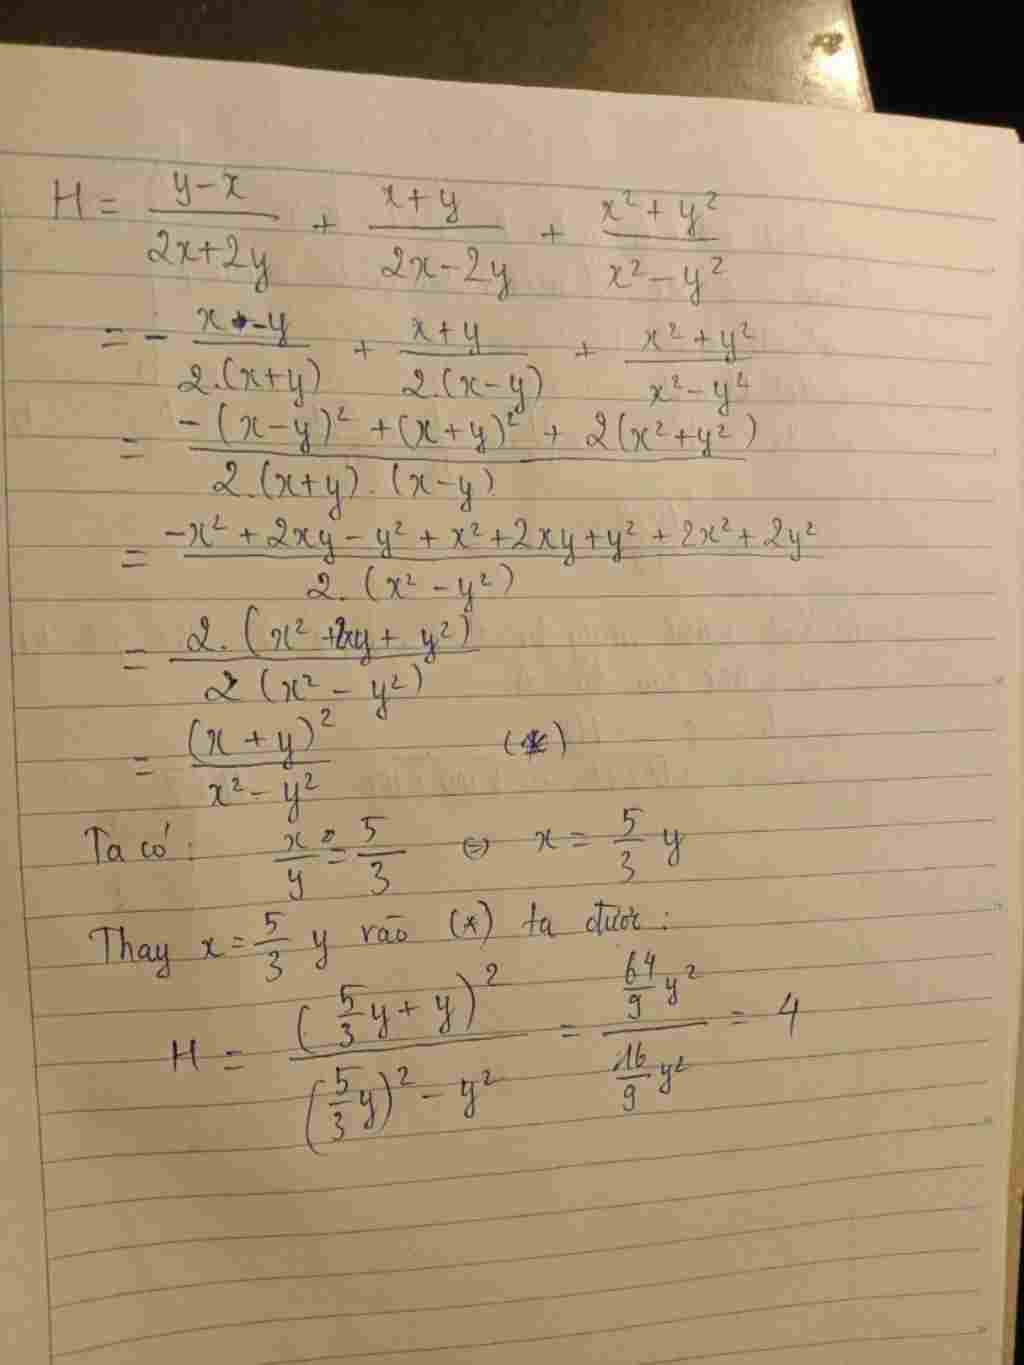 H = \frac{y-x}{2x+2y} + \frac{x+y}{2x-2y} + \frac{x²+y²}{x²-y²}
= - \frac{x-y}{2.(x+y)} + \frac{x+y}{2.(x-y)} + \frac{x²+y²}{x²-y²}
= \frac{-(x-y)² + (x+y)² + 2(x²+y²)}{2.(x+y).(x-y)}
= \frac{-x²+2xy-y²+x²+2xy+y²+2x²+2y²}{2.(x²-y²)}
= \frac{2.(x²+2xy+y²)}{2(x²-y²)}
= \frac{(x+y)²}{x²-y²} (*)
Ta có: \frac{x}{y} = \frac{5}{3} ⇔ x = \frac{5}{3} y
Thay x = \frac{5}{3} y vào (*) ta được:
H = \frac{(\frac{5}{3}y+y)²}{(\frac{5}{3}y)²-y²} = \frac{\frac{64}{9}y²}{\frac{16}{9}y²} = 4